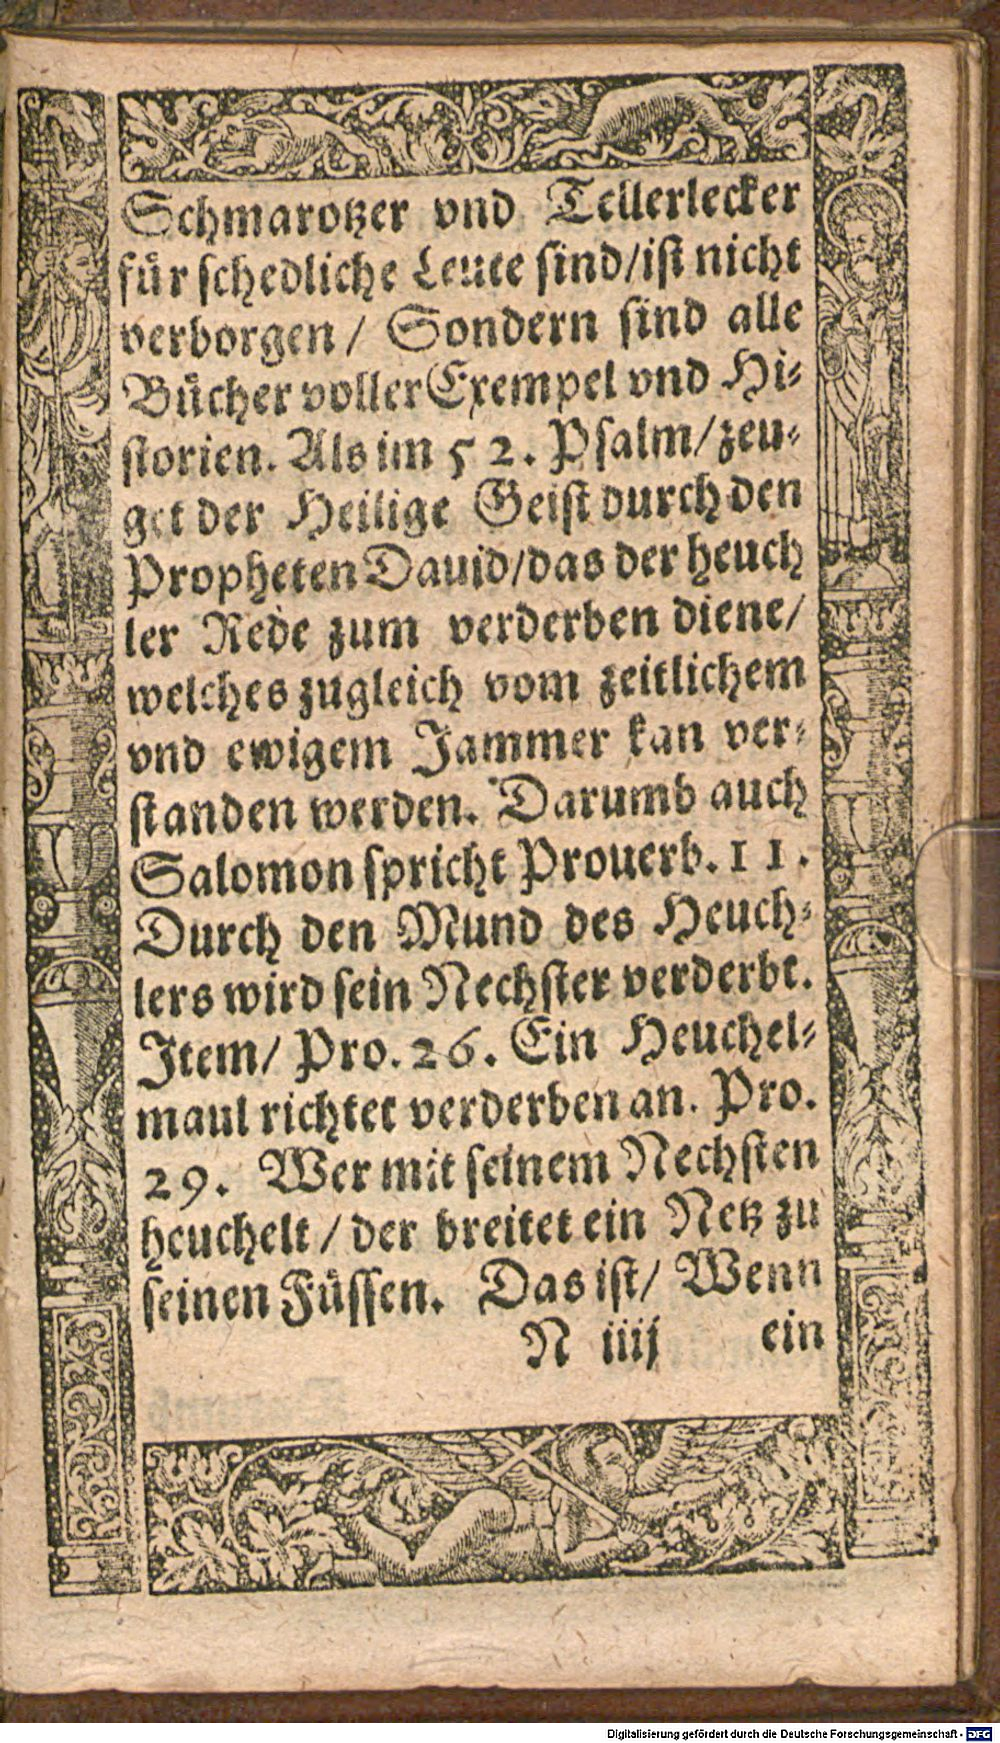 Schmarotzer vnd Tellerlecker
für schedliche Leute sind/ist nicht
verborgen/ Sondern sind alle
Bücher voller Exempel vnd Hi-
storien. Als im 52. Psalm/zeu-
get der Heilige Geist durch den
Propheten Dauid/das der heuch
ler Rede zum verderben diene/
welches zugleich vom zeitlichem
vnd ewigem Jammer kan ver-
standen werden. Darumb auch
Salomon spricht Prouerb. 11.
Durch den Mund des Heuch-
lers wird sein Nechster verderbt.
Item/ Pro. 26. Ein Heuchel-
maul richtet verderben an. Pro.
29. Wer mit seinem Nechsten
heuchelt/der breitet ein Netz zu
seinen Füssen. Das ist/ Wenn
N iiij ein
Digitalisierung gefördert durch die Deutsche Forschungsgemeinschaft - DFG